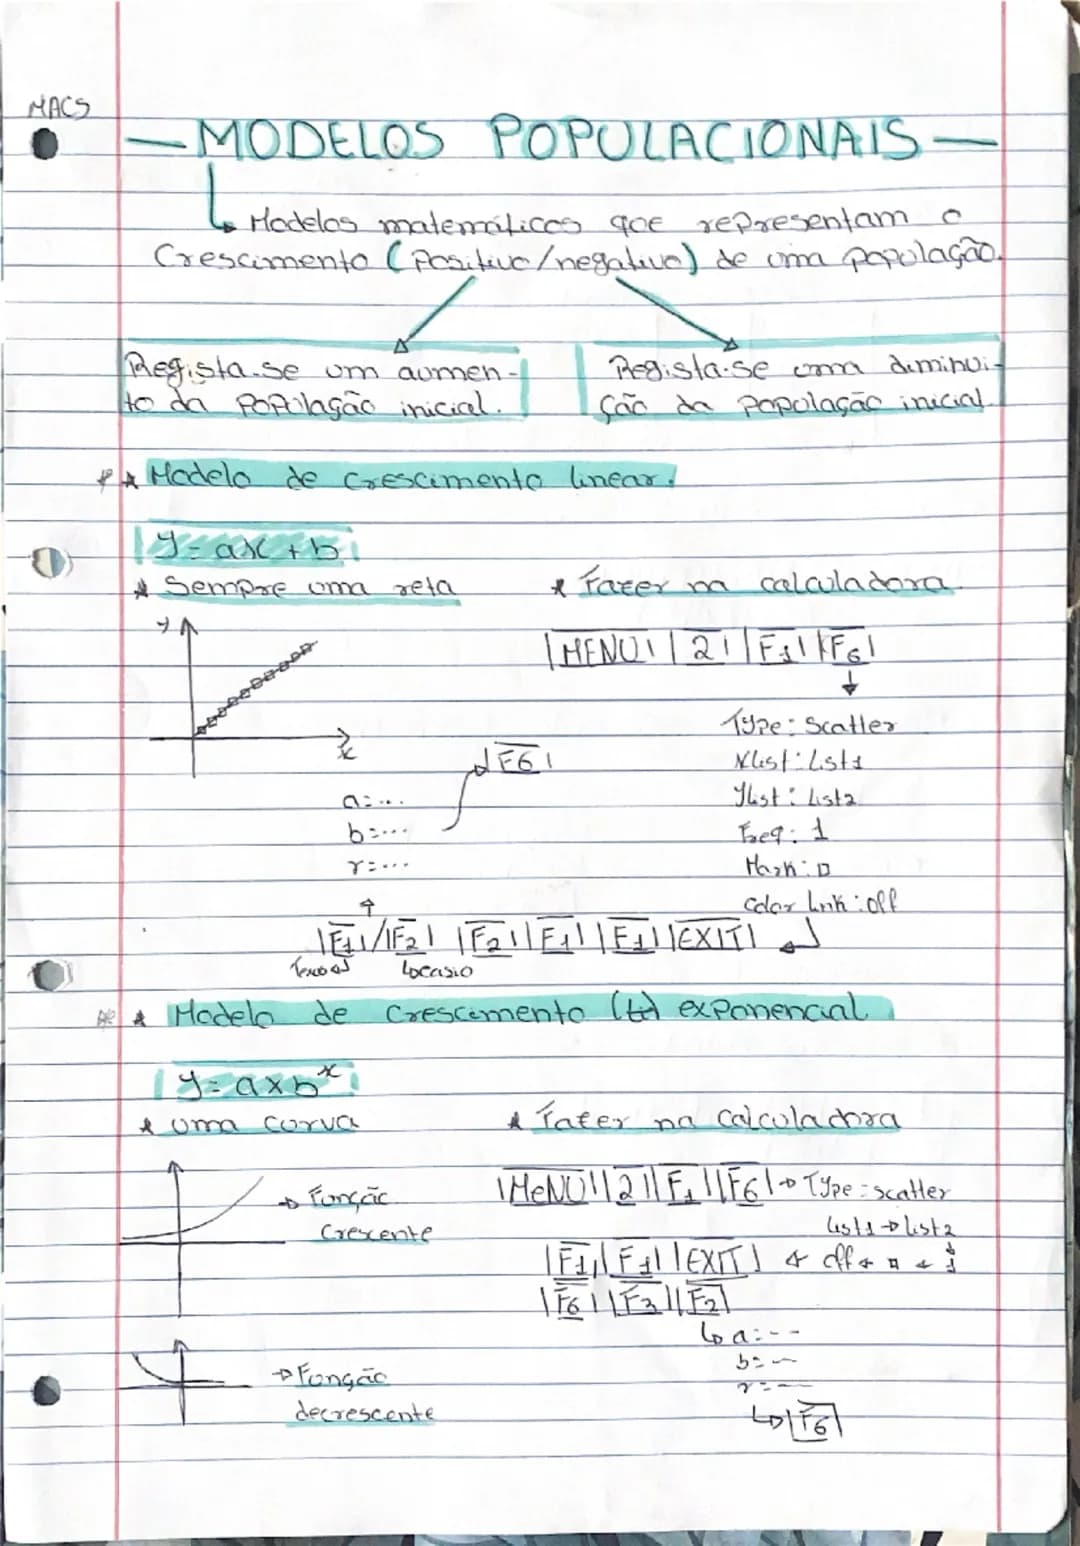 MACS
— MODELOS POPULACIONAIS —
Modelos matemáticos que representam o
Crescimento (Positivo/negativo) de uma População.
Regista-se um aumen-
to da População inicial.
Regista-se uma diminui-
ção da população inicial.
Modelo de crescimento linear.
y = ax + b
Sempre uma reta
Fazer na calculadora
y
x
|MENU| |2| |F1| |F6|
Type: Scatter
Xlist: List1
Ylist: List2
Freq: 1
Mark: □
Color Link: off
|F6|
a=...
b=...
r=...
|F1|/|F2| |F2| |F1| |F1| |EXIT|
Casio
Modelo de Crescimento exponencial
y = a×b^x
uma curva
Fazer na calculadora
→ Função
Crescente
|MeNU| |2| |F1| |F6| → Type = scatter
list1 → list2
|F1| |F1| |EXIT| ← off ← □ ← 1
|F6| |F3| |F2|
a: --
b= —
r= —
|F6|
→ Função
decrescente